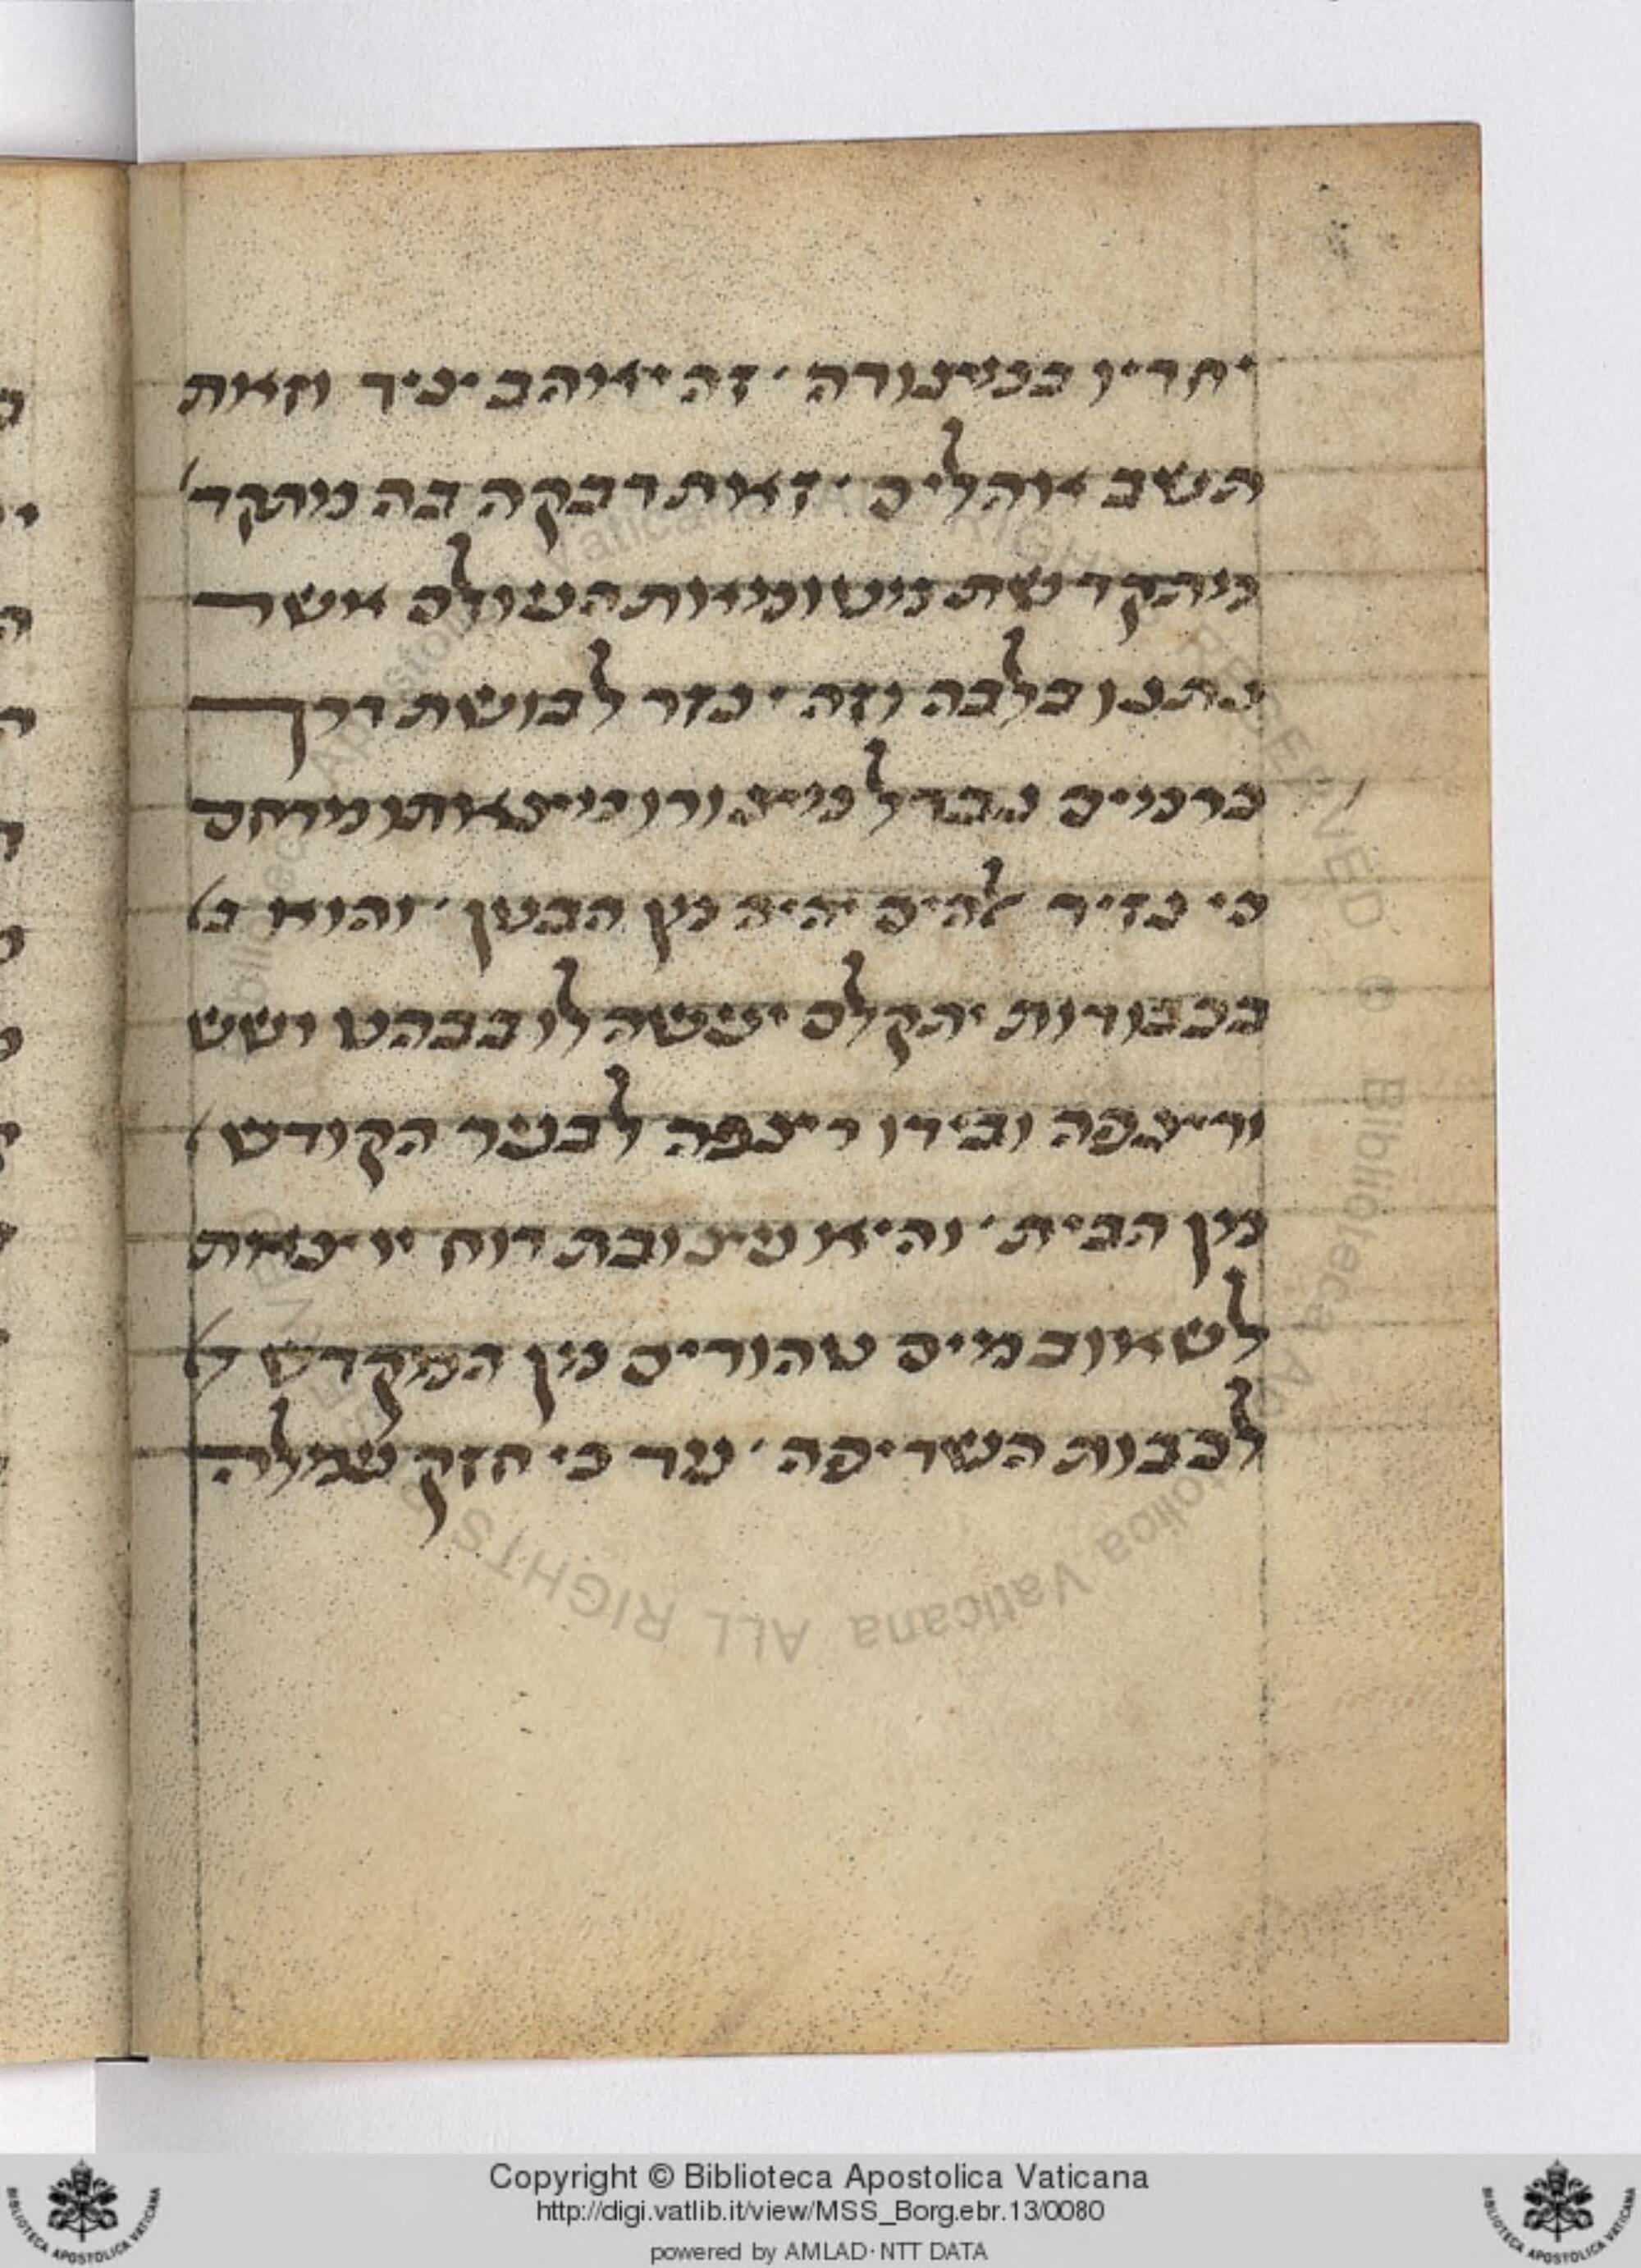 יחדיו בכינורה · זה יאוהב יכיר וזאת
תשב אוהלים · זאת דבקה בה מתקד
מתקדשת מטומאות העולם אשר
נתנו בלבה וזה · נזר לבושת דרך
כרמים נבדל
כי נזיר להים יהיה מן הבטן · והוא
בכבודות יתקלס יעשה לו בבהט ושש
וריצפה ובידו ריצפה לבער הקודש
מן הבית · והיא עצובת רוח יוצאת
לשאוב מים טהורים מן המקדש
לכבות השריפה · עד כי חזק
Copyright © Biblioteca Apostolica Vaticana
http://digi.vatlib.it/view/MSS_Borg.ebr.13/0080
powered by AMLAD·NTT DATA